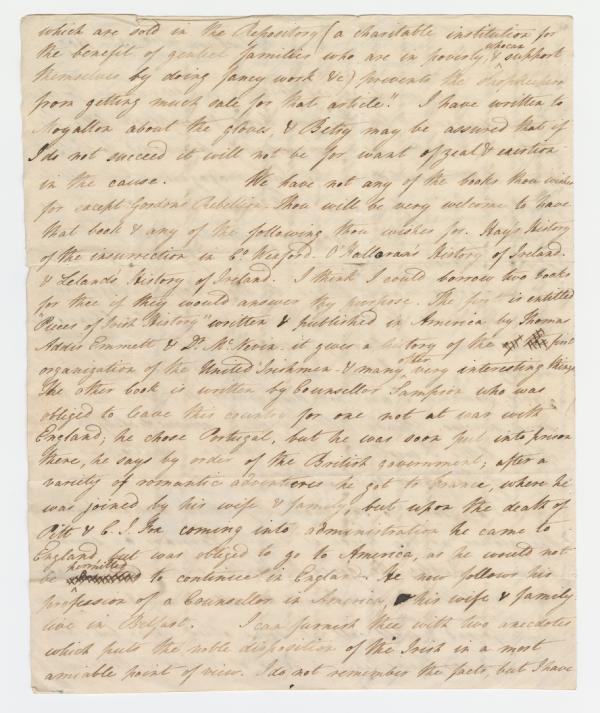 which are sold in the Repository (a charitable institution for
the benefit of genteel families who are in poverty, & who can support
themselves by doing fancy work &c) prevents the shopkeepers
from getting much sale for that article." I have written to
Moyallon about the gloves, & Betsy may be assured that if
I do not succeed it will not be for want of zeal & exertion
in the cause. We have not any of the books thou wishes
for except Gordon's Rebellion. Thou will be very welcome to have
that book & any of the following thou wishes for. Hay's History
of the insurrection in Co. Wexford. O'Halloran's History of Ireland.
& Leland's History of Ireland. I think I could borrow two books
for thee if they would answer thy purpose. The first is entitled
"Pieces of Irish History" written & published in America by Thomas
Addis Emmett & Dr. McNevin. it gives a history of the first
organization of the United Irishmen & many other very interesting things
The other book is written by Counsellor Sampson who was
obliged to leave this country for one not at war with
England; he chose Portugal, but he was soon put into prison
there, he says by order of the British government; after a
variety of romantic adventures he got to France, where he
was joined by his wife & family, but upon the death of
Pitt & C. J. Fox coming into administration he came to
England, but was obliged to go to America, as he would not
be permitted to continue in England. He now follows his
profession of a Counsellor in America, his wife & family
live in Belfast. I can furnish thee with two anecdotes
which puts the noble disposition of the Irish in a most
amiable point of view. I do not remember the facts, but I have